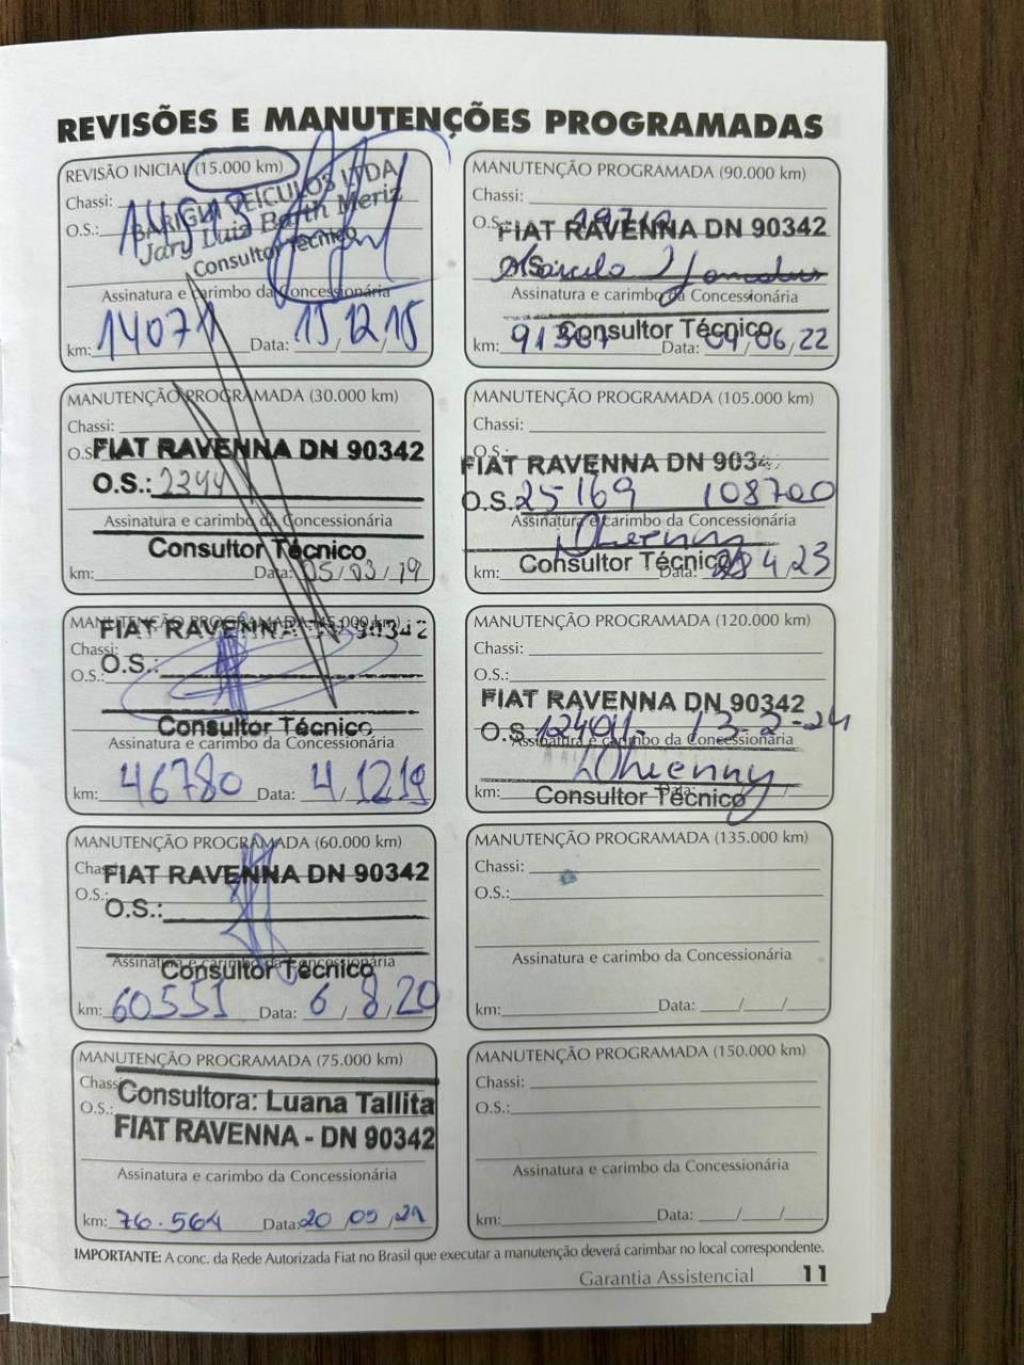 REVISÕES E MANUTENÇÕES PROGRAMADAS
REVISÃO INICIAL (15.000 km)
Chassi:
BARIGUI VEICULOS LTDA
O.S.:
Jary Luiz Barth Meriz
Consultor Técnico
Assinatura e carimbo da Concessionária
km: 14071 Data: 15/12/15
MANUTENÇÃO PROGRAMADA (30.000 km)
Chassi:
O.S.:
FIAT RAVENNA DN 90342
O.S.: 2344
Assinatura e carimbo da Concessionária
Consultor Técnico
km: Data: 05/03/19
MANUTENÇÃO PROGRAMADA (45.000 km)
FIAT RAVENNA DN 90342
Chassi:
O.S.:
O.S.:
Consultor Técnico
Assinatura e carimbo da Concessionária
km: 46780 Data: 4/12/19
MANUTENÇÃO PROGRAMADA (60.000 km)
Chassi:
FIAT RAVENNA DN 90342
O.S.:
O.S.:
Assinatura e carimbo da Concessionária
Consultor Técnico
km: 60551 Data: 6/8/20
MANUTENÇÃO PROGRAMADA (75.000 km)
Chassi:
Consultora: Luana Tallita
O.S.:
FIAT RAVENNA - DN 90342
Assinatura e carimbo da Concessionária
km: 76.564 Data: 20/09/21
MANUTENÇÃO PROGRAMADA (90.000 km)
Chassi:
O.S.:
FIAT RAVENNA DN 90342
O.S.
Assinatura e carimbo da Concessionária
Consultor Técnico
km: Data: 04/06/22
MANUTENÇÃO PROGRAMADA (105.000 km)
Chassi:
O.S.:
FIAT RAVENNA DN 9034
O.S. 25169 108700
Assinatura e carimbo da Concessionária
Consultor Técnico
km: Data: 28/4/23
MANUTENÇÃO PROGRAMADA (120.000 km)
Chassi:
O.S.:
FIAT RAVENNA DN 90342
O.S. 13-2-24
Assinatura e carimbo da Concessionária
km: Data:
Consultor Técnico
MANUTENÇÃO PROGRAMADA (135.000 km)
Chassi:
O.S.:
Assinatura e carimbo da Concessionária
km: Data: / /
MANUTENÇÃO PROGRAMADA (150.000 km)
Chassi:
O.S.:
Assinatura e carimbo da Concessionária
km: Data: / /
IMPORTANTE: A conc. da Rede Autorizada Fiat no Brasil que executar a manutenção deverá carimbar no local correspondente.
Garantia Assistencial 11